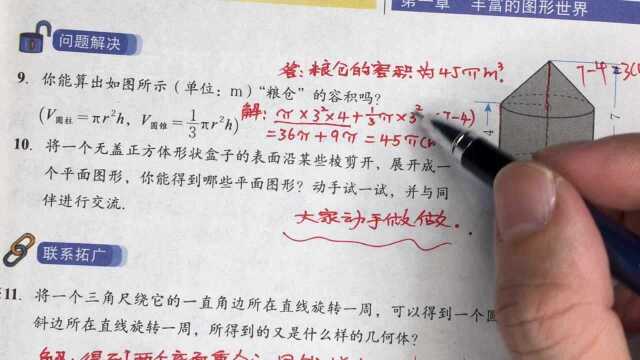 第一章 丰富的图形世界
问题解决
答:粮仓的容积为45πm³.
7-4=3(
9. 你能算出如图所示(单位:m)“粮仓”的容积吗?
(V圆柱=πr²h, V圆锥=1/3πr²h)
解: π×3²×4+1/3π×3²×(7-4)
=36π+9π=45π(
4
7
10. 将一个无盖正方体形状盒子的表面沿某些棱剪开,展开成一
个平面图形,你能得到哪些平面图形?动手试一试,并与同
伴进行交流.
大家动手做做.
联系拓广
11. 将一个三角尺绕它的一直角边所在直线旋转一周,可以得到一个圆
斜边所在直线旋转一周,所得到的又是什么样的几何体?